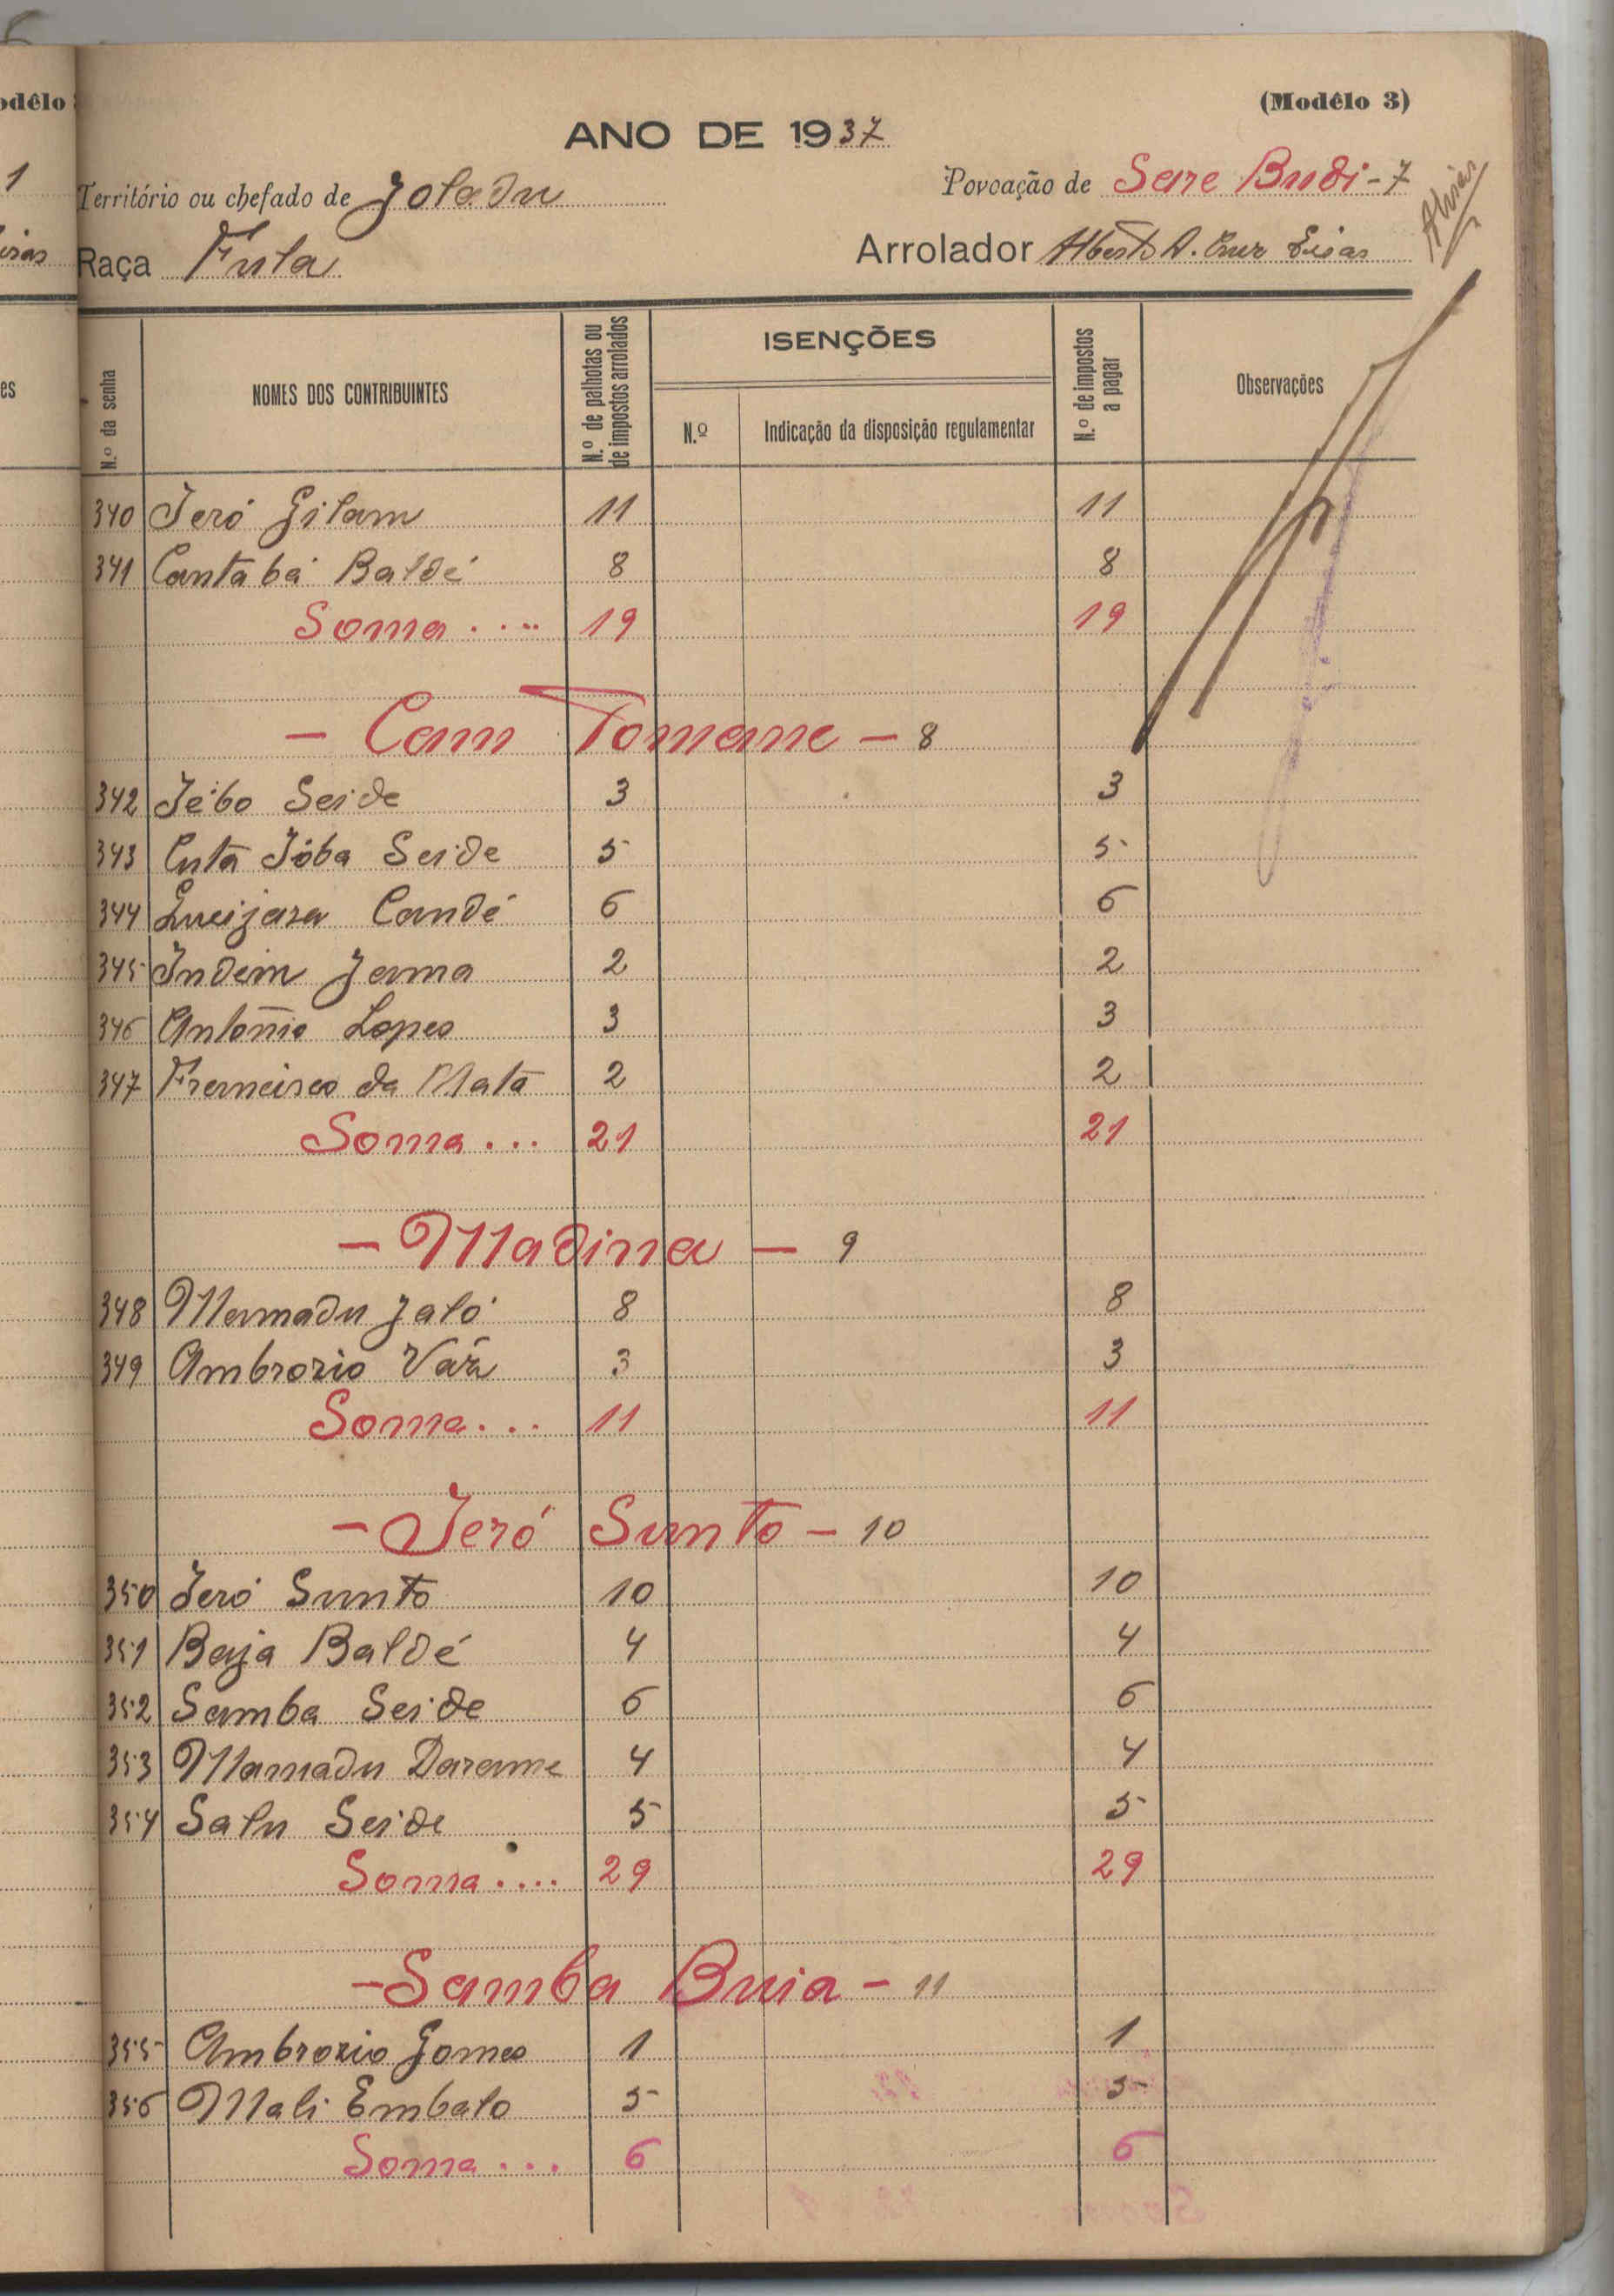 odêlo
(Modêlo 3)
ANO DE 1937
1
Território ou chefado de Joladu
Povoação de Sare Budi - 7
Raça Fula
Arrolador Alberto A. Cruz
es
N.º da senha
NOMES DOS CONTRIBUINTES
N.º de palhotas ou de impostos arrolados
ISENÇÕES
N.º
Indicação da disposição regulamentar
N.º de impostos a pagar
Observações
340 Jeró Gilam 11 11
341 Cantabá Baldé 8 8
Soma .... 19 19
- Cam Tomane - 8
342 Jébo Seide 3 3
343 Cuta Jóba Seide 5 5
344 Queijara Candé 6 6
345 Indem Jama 2 2
346 António Lopes 3 3
347 Francisco da Mata 2 2
Soma ... 21 21
- Madina - 9
348 Mamadu Jaló 8 8
349 Ambrozio Váz 3 3
Soma ... 11 11
- Jeró Sunto - 10
350 Jeró Sunto 10 10
351 Baja Baldé 4 4
352 Samba Seide 6 6
353 Mamadu Darame 4 4
354 Salu Seide 5 5
Soma .... 29 29
- Samba Buia - 11
355 Ambrozio Gomes 1 1
356 Mali Embalo 5 5
Soma ... 6 6